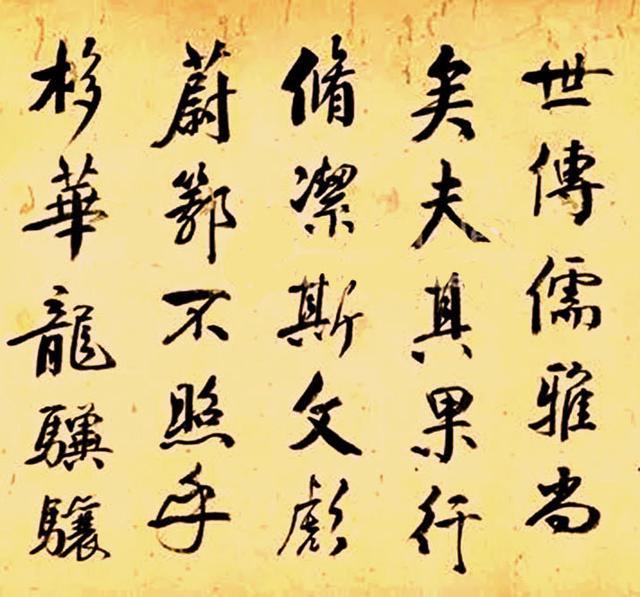 世傳儒雅尚
矣夫具果行
脩潔斯文彪
蔚鄴不照乎
移華龍驥驤